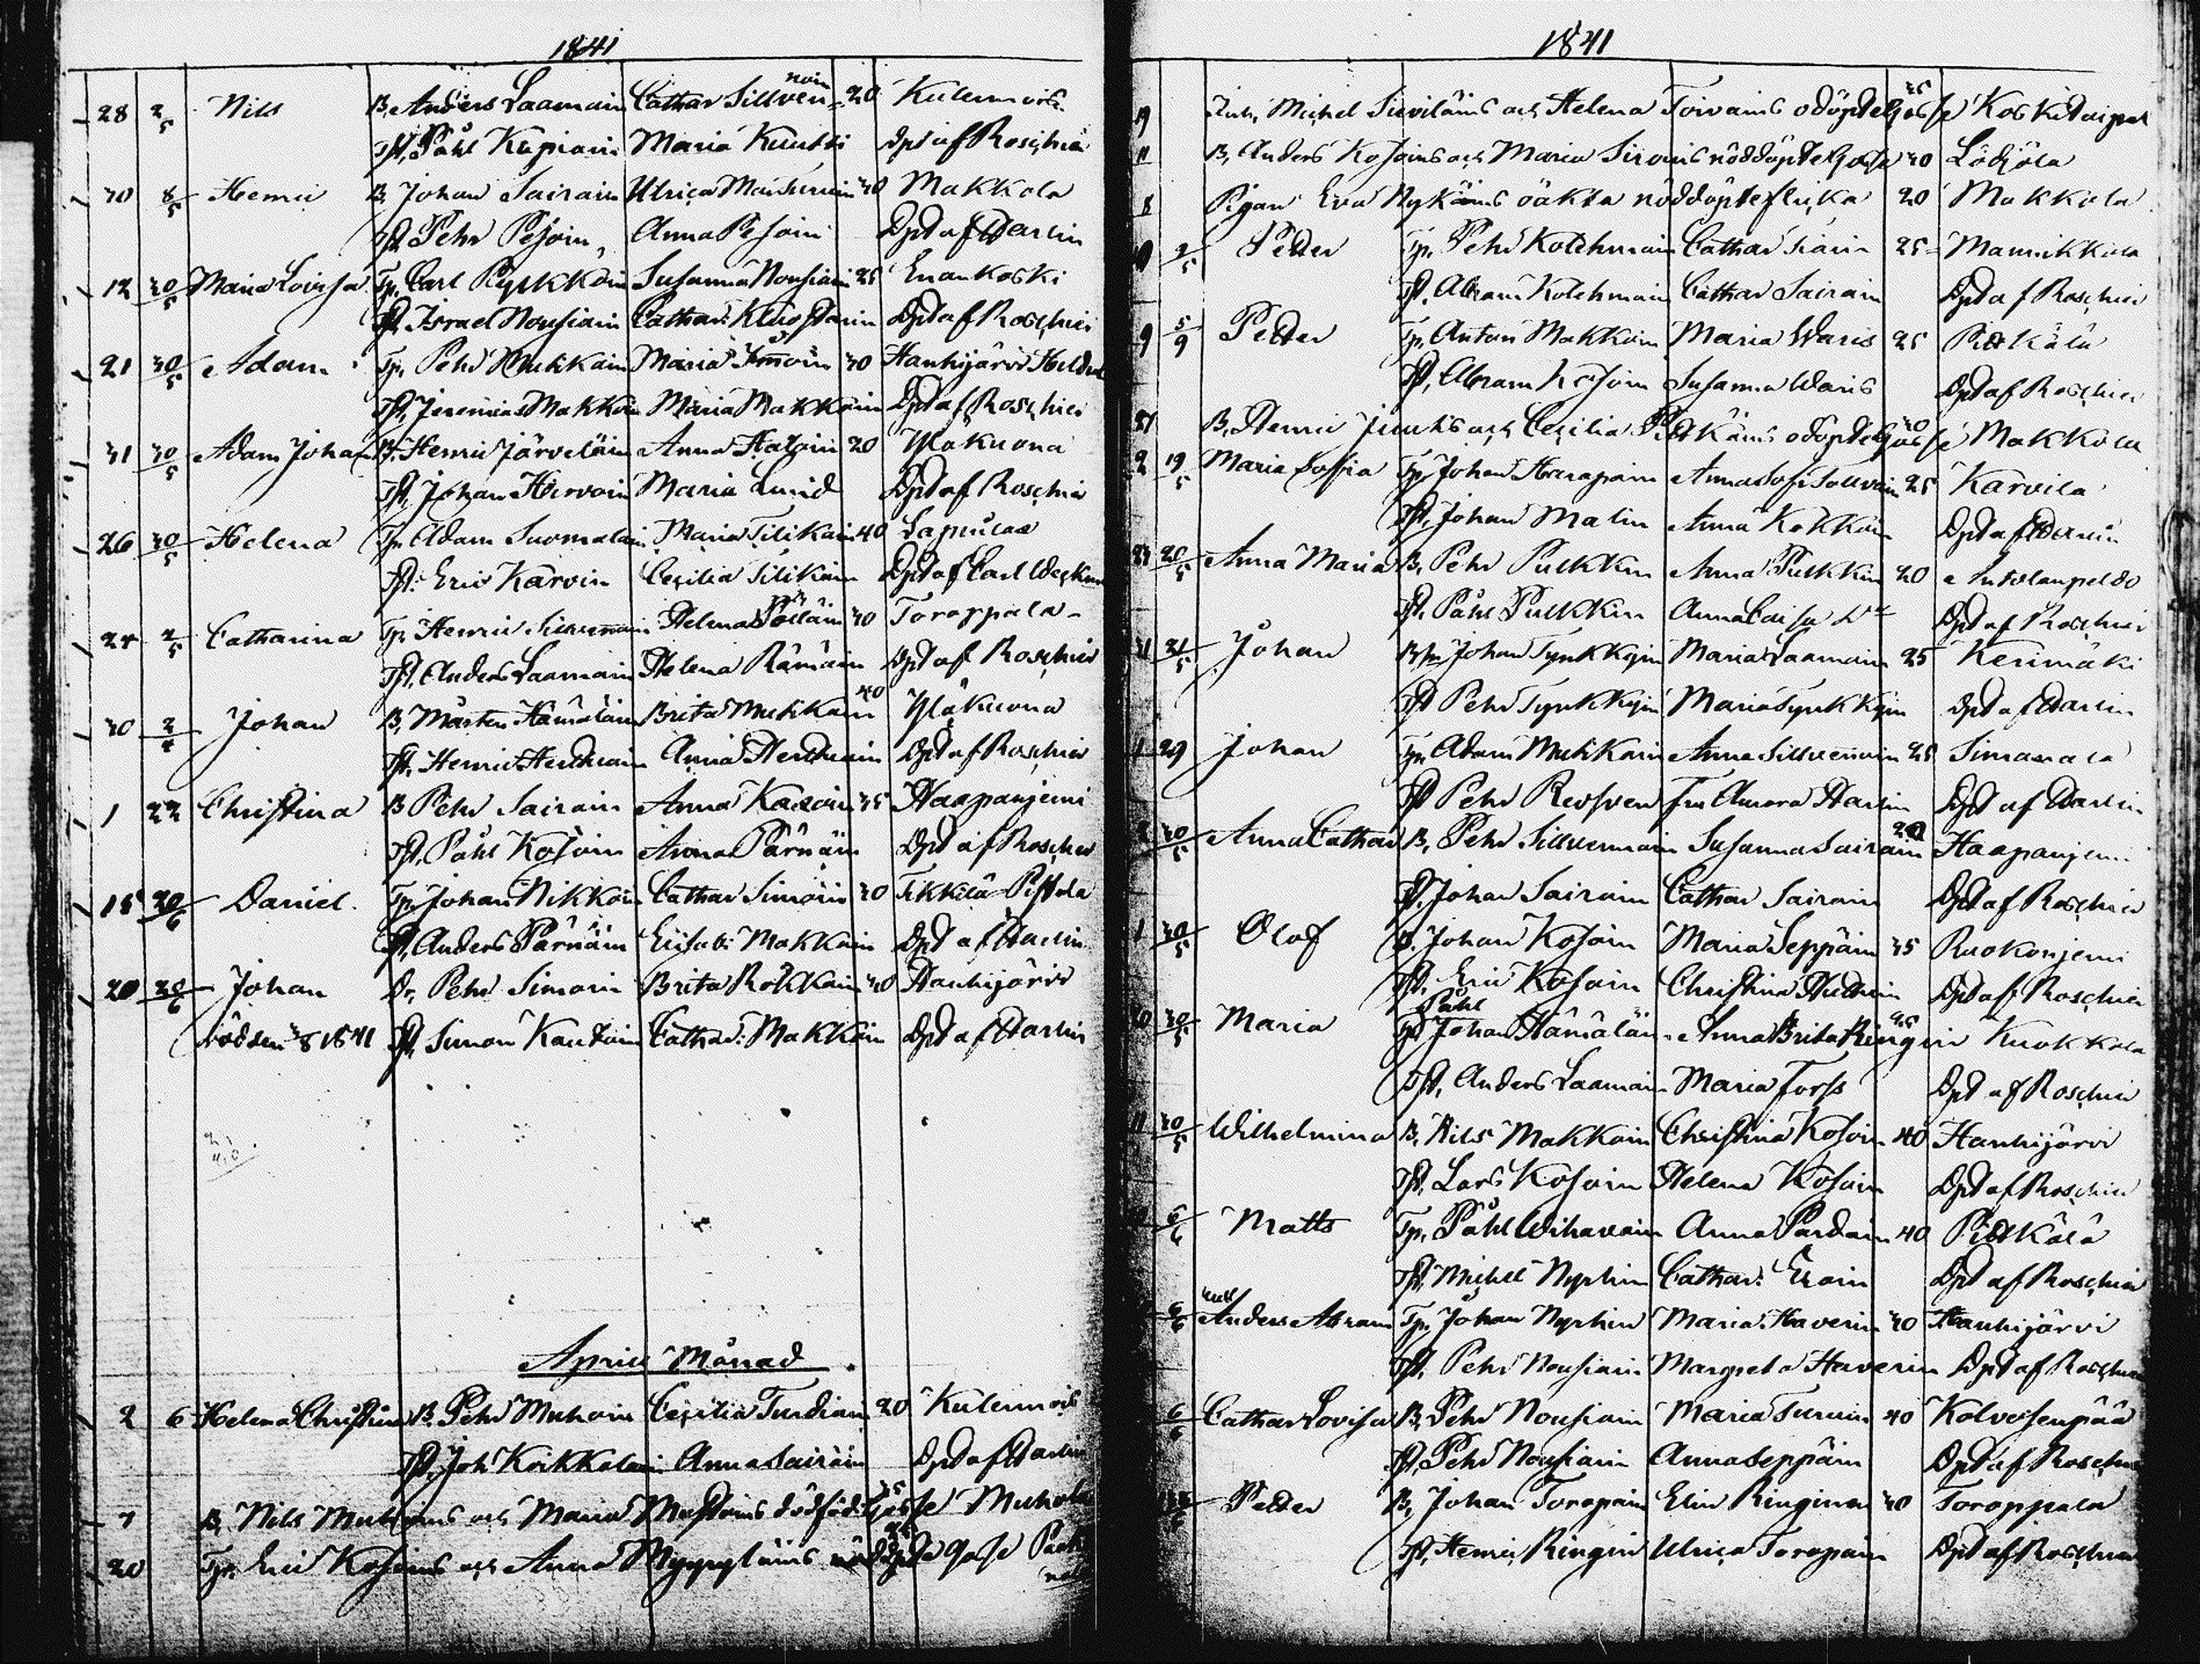 1841
28 2/5 Nils B. Anders Laamain Cathar Sillven= noin 20 Kulenvois
Tst. Påhl Kupiain Maria Kuutti Dpt af Roschier
30 8/5 Henric B. Johan Sairain Ulrica Maisturin 30 Makkola
Tst. Pehr Pesoin, Anna Pesoin Dpt af Harlin
12 30/5 Maria Lovisa Tp. Carl Pyykköin Susanna Nousiain 25 Enankoski
Tst. Israel Nousiain Cathar: Klugstarin Dpt af Roschier
21 30/5 Adam Tp. Pehr Muhkain Maria Immoin 30 Hanhijärvi
Tst. Jeremias Makkoin Maria Makkoin Dpt af Roschier
31 30/5 Adam Johan B. Henric Järveläin Anna Haloin 20 Yläkuona
Tst. Johan Hirvoin Maria Lund Dpt af Roschier
26 30/5 Helena Tp. Adam Suomalain Maria Silikain 40
Tst: Eric Karvin Cecilia Silikain Dpt af Carl
24 2/5 Catharina Tp. Henric Silvennoin Helena Pöllöin 30 Toroppala
Tst. Anders Laamain Helena Rämäin Dpt af Roschier
30 2/4 Johan B. Mårten Hämäläin Brita Muhkain 40 Yläkuona
Tst. Henric Hendunain Anna Hendunain Dpt af Roschier
1 22 Christina B Pehr Sairain Anna Kasoin 35 Haapaniemi
Tst. Påhl Kosoin Anna Pärnäin Dpt af Roschier
15 20/6 Daniel. Tp. Johan Nikkoin Cathar Simoin 30 Tikkilä
Tst. Anders Pärnäin Elisab: Makkoin Dpt af Harlin
20 28/6 Johan Dr. Pehr Simoin Brita Rokkain 40 Hanhijärvi
född den 3/8 1841 Tst. Simon Kautoin Cathar: Makkoin Dpt af Harlin
April Månad
2 6 Helena Christina B. Pehr Muhoin Cecilia Turdiain 20 Kulenvois
Tst. Joh Koikkalain Anna Sairain Dpt af Harlin
7 B. Nils Muhoins och Maria Mustoins dödföd: 35 Gosse Muhola
20 Tp. Eric Kosoins och Anna Myyryläins nöddöpte gosse
1841
19 Inh. Michel Sieviläins och Helena Toivains odöpte 25 Gosse Koskitaipal
11 B. Anders Kosoins och Maria Siroins nöddöpte Gosse 30 Lödjöla
8 Pigan Eva Nykäins oäkta nöddöpte flicka 20 Makkola
10 2/5 Petter Tp. Pehr Kolehmain Cathar Siäin 25 Mannikkola
Tst. Abram Kolehmain Cathar Sairain Dpt af Roschier
9 5/9 Petter Tp. Anton Makkoin Maria Waris 25 Pitkälä
Tst. Abram Kosoin Susanna Waris Dpt af Roschier
21 B. Henric Juutis och Cecilia Pitkäins odöpte 30 Gosse Makkola
2 19/5 Maria Sofia Tp. Johan Haarapain Anna Sof: Sallvain 25 Karvila
Tst. Johan Malin Anna Kokkoin Dpt af Harlin
23 20/5 Anna Maria B. Pehr Pulkkin Anna Pulkkin 20 Antolanpelto
Tst. Påhl Pulkkin Anna Caisa Dpt af Roschier
21 21/5 Johan Johan Tynkkyin Maria Laamain 25 Kerimäki
Tst Pehr Tynkkyin Maria Tynkkyin Dpt af Harlin
11 29 Johan Tp. Adam Muhkain Anna Sillvennoin 25 Simanala
Tst Pehr Fru Aurora Harlin Dpt af Harlin
2 30/5 Anna Cathar B. Pehr Sillvennoin Susanna Sairain 20 Haapaniemi
Tst. Johan Sairain Cathar Sairain Dpt af Roschier
1 30/5 Olof B. Johan Kosoin Maria Seppäin 35 Ruokoniemi
Tst. Eric Kosoin Christina Dpt af Roschier
20 30/5 Maria Påhl Johan Hämäläin Anna Brita Ringin 25 Kuokkola
Tst. Anders Laamain Maria Forss Dpt af Roschier
11 30/5 Wilhelmina B. Nils Makkoin Christina Kosoin 40 Hanhijärvi
Tst. Lars Kosoin Helena Kosoin Dpt af Roschier
6/6 Matts Tp. Påhl Wihavain Anna Pardain 40 Pitkälä
Tst. Michel Nyrhin Cathar: Eroin Dpt af Roschier
6/6 Anders Abram Tp. Johan Nyrhin Maria Haverin 30 Hanhijärvi
Tst. Pehr Nousiain Margreta Haverin Dpt af Roschier
6/6 Cathar Lovisa B. Pehr Nousiain Maria Turuin 40 Kolvosenpää
Tst. Pehr Nousiain Anna Seppäin Dpt af Roschier
Petter B. Johan Toropain Elin Ringinen 30 Toroppala
Tst. Henric Ringin Ulrica Toropain Dpt af Roschier